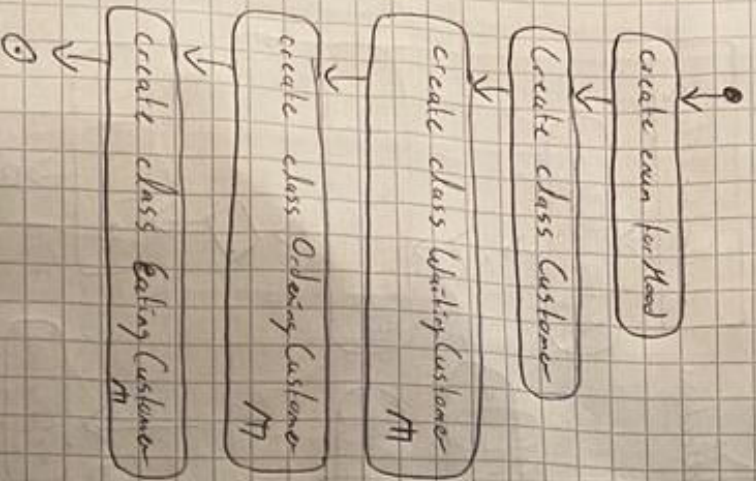 create enum for Mood
Create class Customer
create class WaitingCustomer
create class OrderingCustomer
create class EatingCustomer